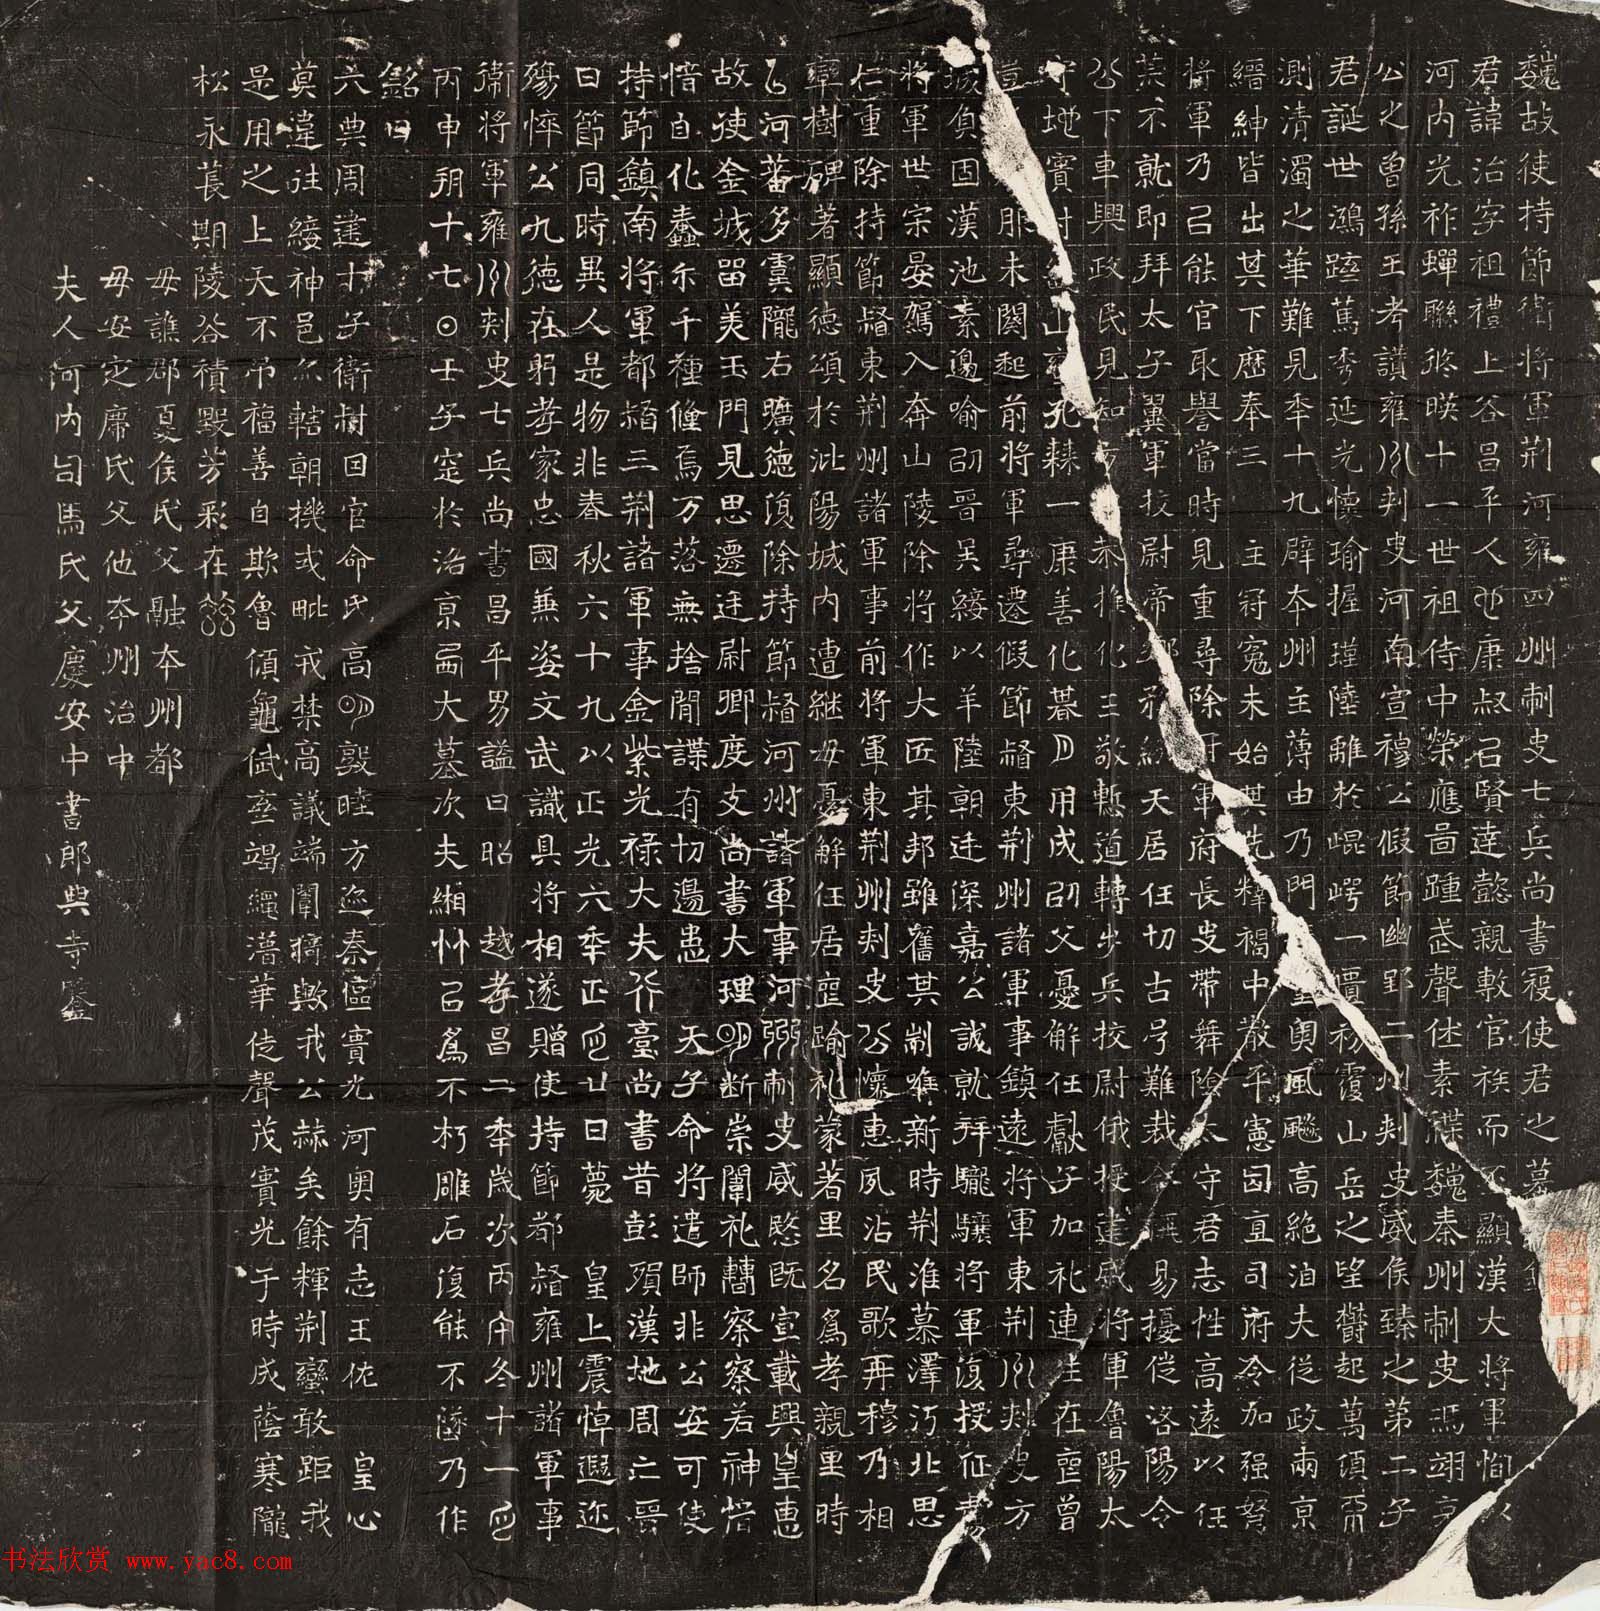 魏故使持節衛將軍荊河雍四州刺史七兵尚書寇使君之墓
君諱治字祖禮上谷昌平人也康叔㠯賢達懿親敷官族而丕顯漢大將軍恂以
河內光祚蟬聯終暎十一世祖侍中榮應啚踵武聲休素牒魏秦州刺史馮翊哀
公之曾孫王考讚雍州刺史河南宣穆公假節幽郢二州刺史威侯臻之第二子
君誕世鴻蹤篤秀延光懷瑜握瑾陸離於崐崿一匱初霞山岳之望欝起萬頃而
測清濁之華難見年十九辟本州主薄由乃門望輿風飈高絕洎夫從政兩京
縉紳皆出其下歷奉三主冠冤未始其先釋褐中散平憲囧直司府冷加强弩
將軍乃㠯能官取譽當時見重尋除軍府長史帶舞陰太守君志性高遠以任
不就即拜太子翼軍校尉帝鄉務天居任切古号難裁今稱易擾從洛陽令
公下車興政民見知方恭推化三敬暫道轉步兵校尉俄授建威將軍魯陽太
守地實山蠻孔棘一康善化朞月用成邵父憂解任獻子加禮連在亶曾
朞服未闋起前將軍尋遷假節督東荊州諸軍事鎮遠將軍東荊州刾史方
城負固漢池素邊喻邵晉吳綏以羊陸朝廷深嘉公誠就拜驤將軍復授征虜
將軍世宗晏駕入奔山陵除將作大匠其邦雖舊其制唯新時荊淮慕澤沔北思
仁重除持節督東荊州諸軍事前將軍東荊州刾史公懷惠夙沾民歌再穆乃相
率樹碑著顯德頌於沘陽城內遭繼母憂解任居亶踰礼蒙著里名為孝親里時
以河蕃多虞隴右曠德復除持節督河州諸軍事河州刺史威愍既宣載興皇惠
故徒金城留美玉門見思遷廷尉卿度支尚書大理明斷崇闈礼闥察察若神愔
愔自化蠢尒千種儵焉万落無捨間諜有切邊患 天子命將遣師非公安可使
持節鎮南將軍都督三荊諸軍事金紫光祿大夫行臺尚書昔彭殞漢地周亡晉
日節同時異人是物非春秋六十九以正光六年正月廿日薨 皇上震悼遐迩
殤悴公九德在躬孝家忠國兼姿文武識具將相遂贈使持節都督雍州諸軍事
衛將軍雍州刾史七兵尚書昌平男謚曰昭 越孝昌二年歲次丙午冬十一月
丙申朔十七日壬子窆於洛京西大墓次夫緗竹㠯為不朽雕石復能不墜乃作
銘曰
六典周建十子衛樹因官命氏高明敦睦方迩秦區實光河輿有志王佐 皇心
莫違往綏神邑尒轄朝機或毗戎禁高議端闈猗歟我公赫矣餘輝荊蠻敢距我
是用之上天不弔福善自欺魯傾龜弒空竭繩潛華徒聲茂實光于時成蔭寒隴
松永萇期陵谷積毀芳彩在茲
母譙郡夏侯氏父融本州都
母安定席氏父他本州治中
夫人河內司馬氏父慶安中書郎典寺鑒
书法欣赏 www.yac8.com